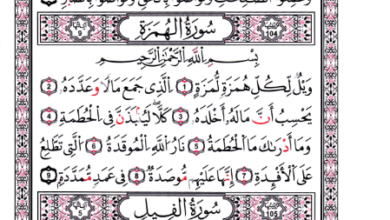 104 سُورَةُ الْهُمَزَةِ 9
بِسْمِ اللَّهِ الرَّحْمَٰنِ الرَّحِيمِ
وَيْلٌ لِّكُلِّ هُمَزَةٍ لُّمَزَةٍ 1 الَّذِي جَمَعَ مَالًا وَعَدَّدَهُ 2
يَحْسَبُ أَنَّ مَالَهُ أَخْلَدَهُ 3 كَلَّا لَيُنۢبَذَنَّ فِي الْحُطَمَةِ 4
وَمَا أَدْرَىٰكَ مَا الْحُطَمَةُ 5 نَارُ اللَّهِ الْمُوقَدَةُ 6 الَّتِي تَطَّلِعُ
عَلَى الْأَفْـِٔدَةِ 7 إِنَّهَا عَلَيْهِم مُّؤْصَدَةٌ 8 فِي عَمَدٍ مُّمَدَّدَةٍ 9
105 سُورَةُ الْفِيلِ 5